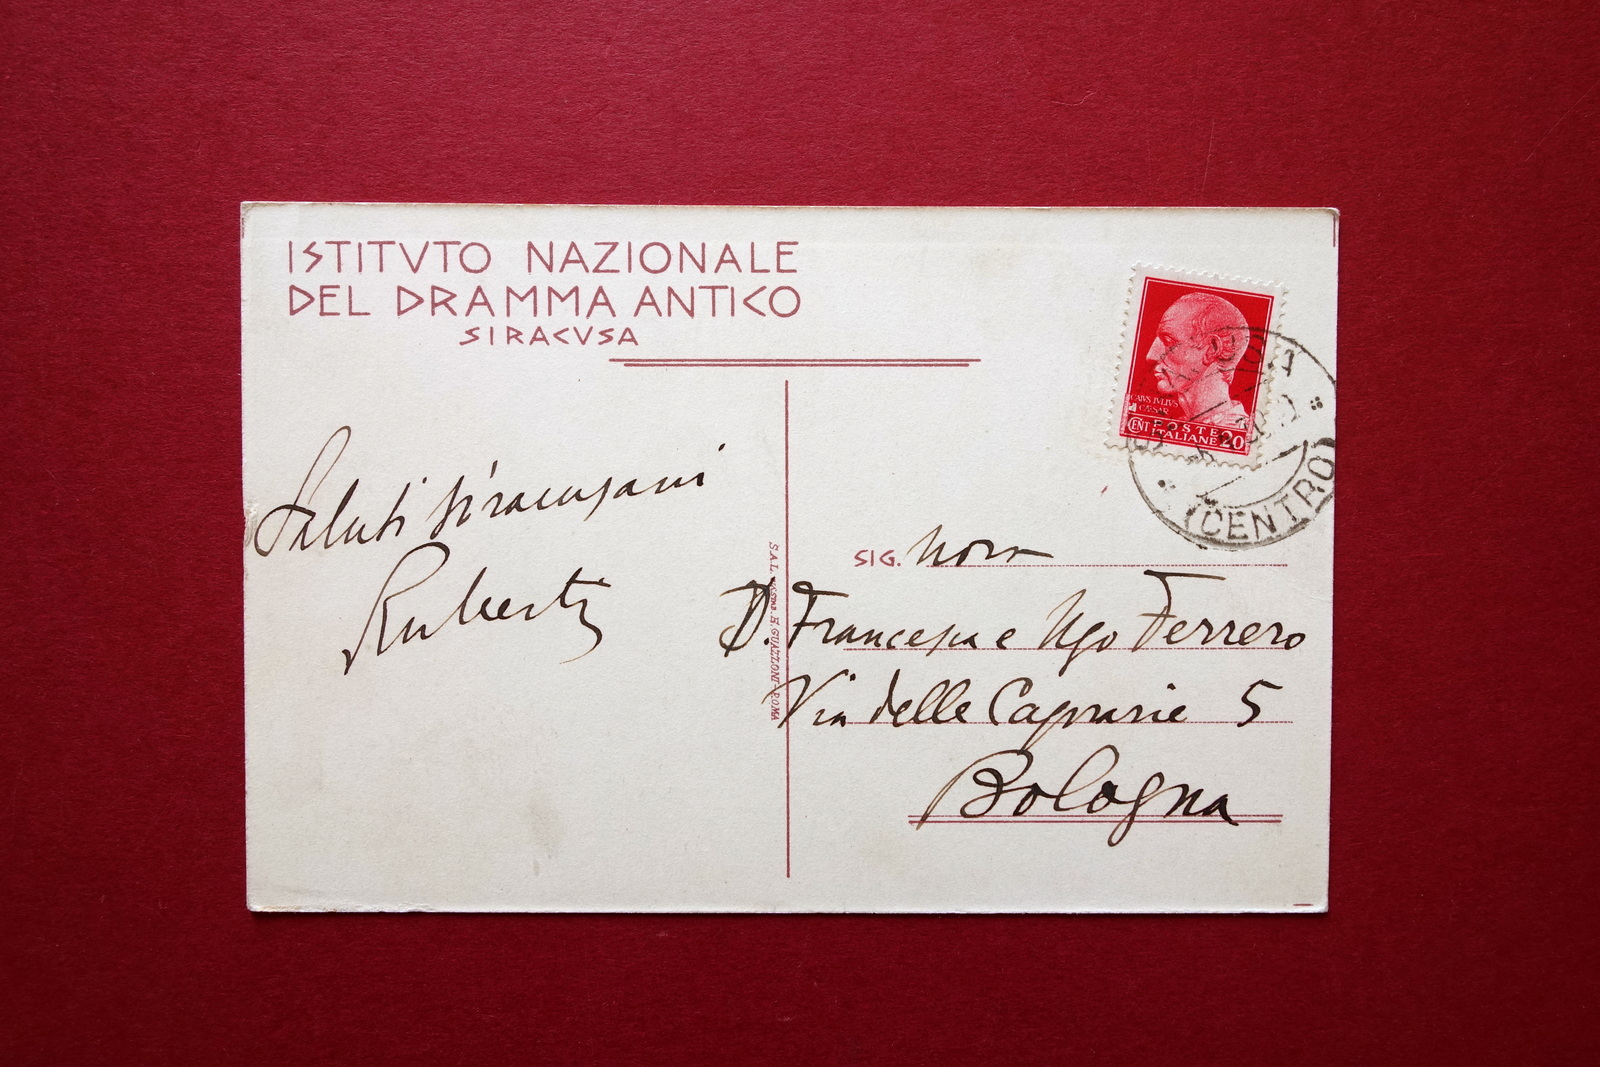 ISTITVTO NAZIONALE
DEL DRAMMA ANTICO
SIRACVSA
CAIVS IVLIVS
CÆSAR
CENT POSTE
ITALIANE 20
(CENTRO)
Saluti siracusani
SIG. nora
D. Francesca e Ugo Ferrero
Via delle Caprarie 5
Bologna
S.A.I. H. GUAZZONI - ROMA